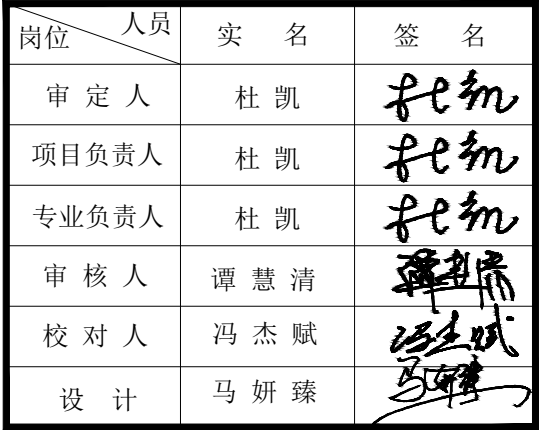 岗位 人员 实 名 签 名
审 定 人 杜 凯 杜凯
项目负责人 杜 凯 杜凯
专业负责人 杜 凯 杜凯
审 核 人 谭 慧 清 谭慧清
校 对 人 冯 杰 赋 冯杰赋
设 计 马 妍 臻 马妍臻